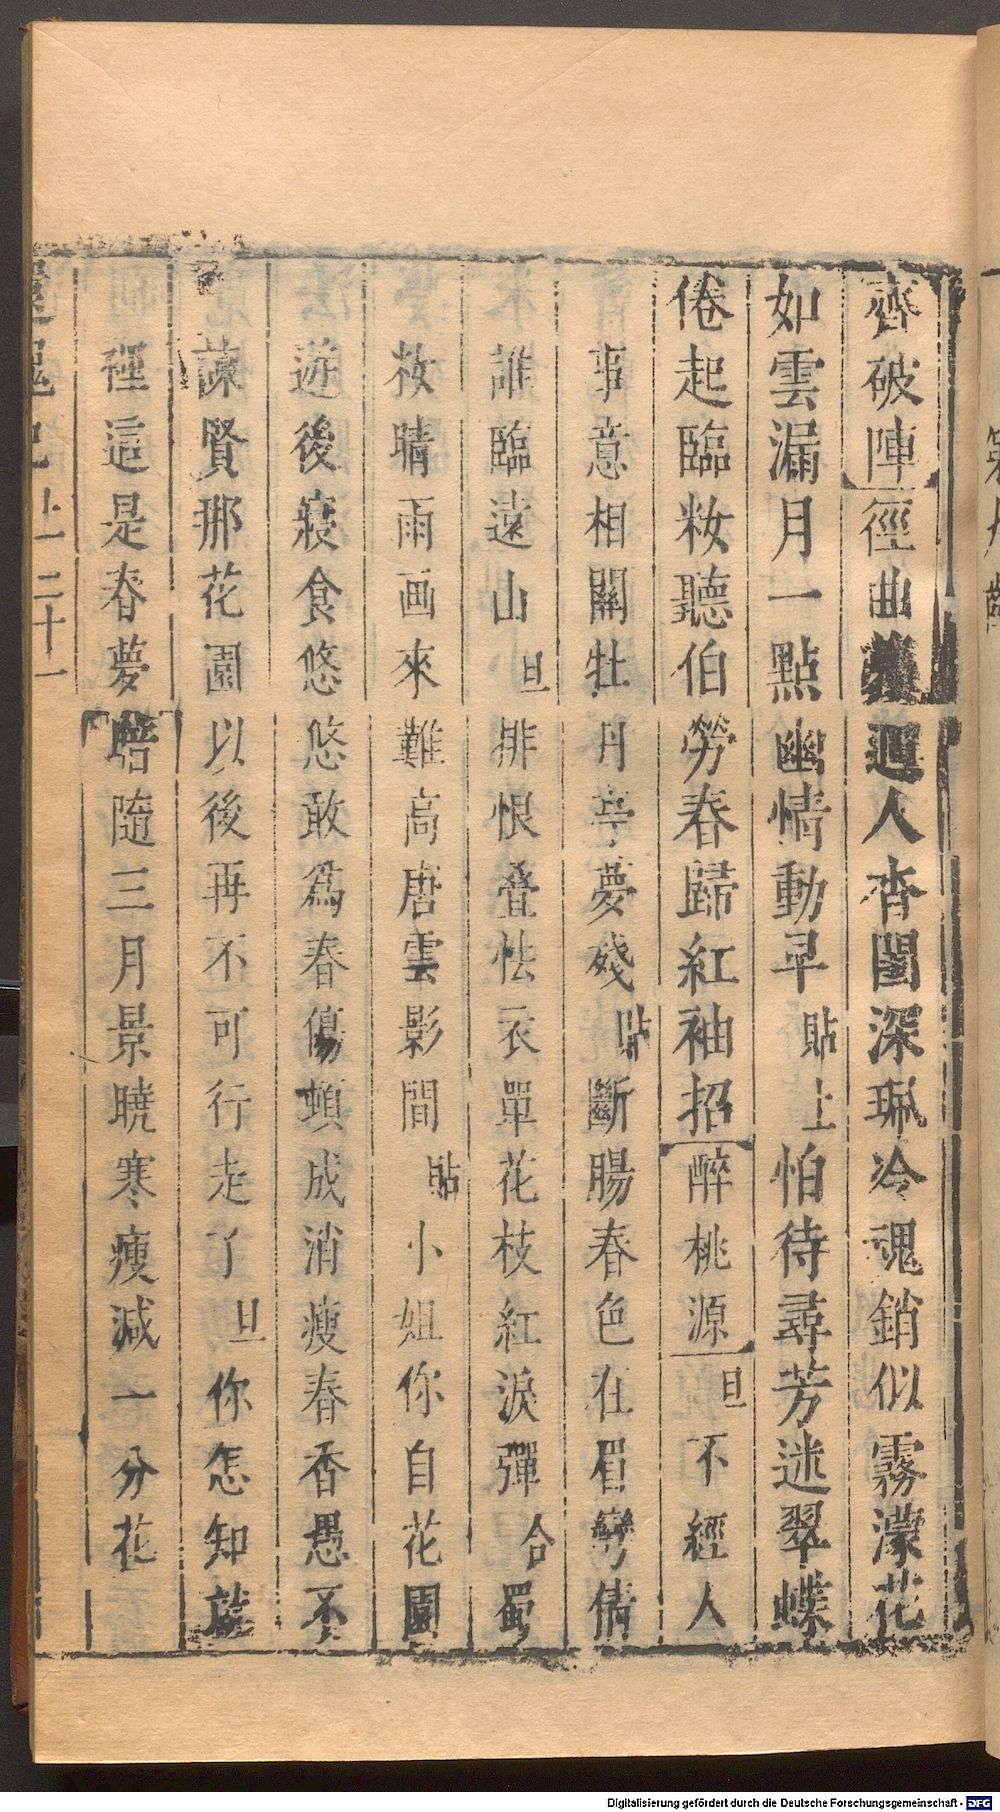 齊破陣徑曲夢迴人杳閨深珮冷魂銷似霧濛花
如雲漏月一點幽情動早貼上怕待尋芳迷翠蝶
倦起臨粧聽伯勞春歸紅袖招醉桃源旦不經人
事意相關牡丹亭夢殘貼斷腸春色在眉彎倩
誰臨遠山旦排恨叠怯衣單花枝紅淚彈合蜀
妝晴雨画來難高唐雲影間貼小姐你自花園
遊後寢食悠悠敢爲春傷頓成消瘦春香愚不
諫賢那花園以後再不可行走了旦你怎知就
裡這是春夢暗隨三月景曉寒瘦減一分花
還魂記 上 二十一
Digitalisierung gefördert durch die Deutsche Forschungsgemeinschaft - DFG